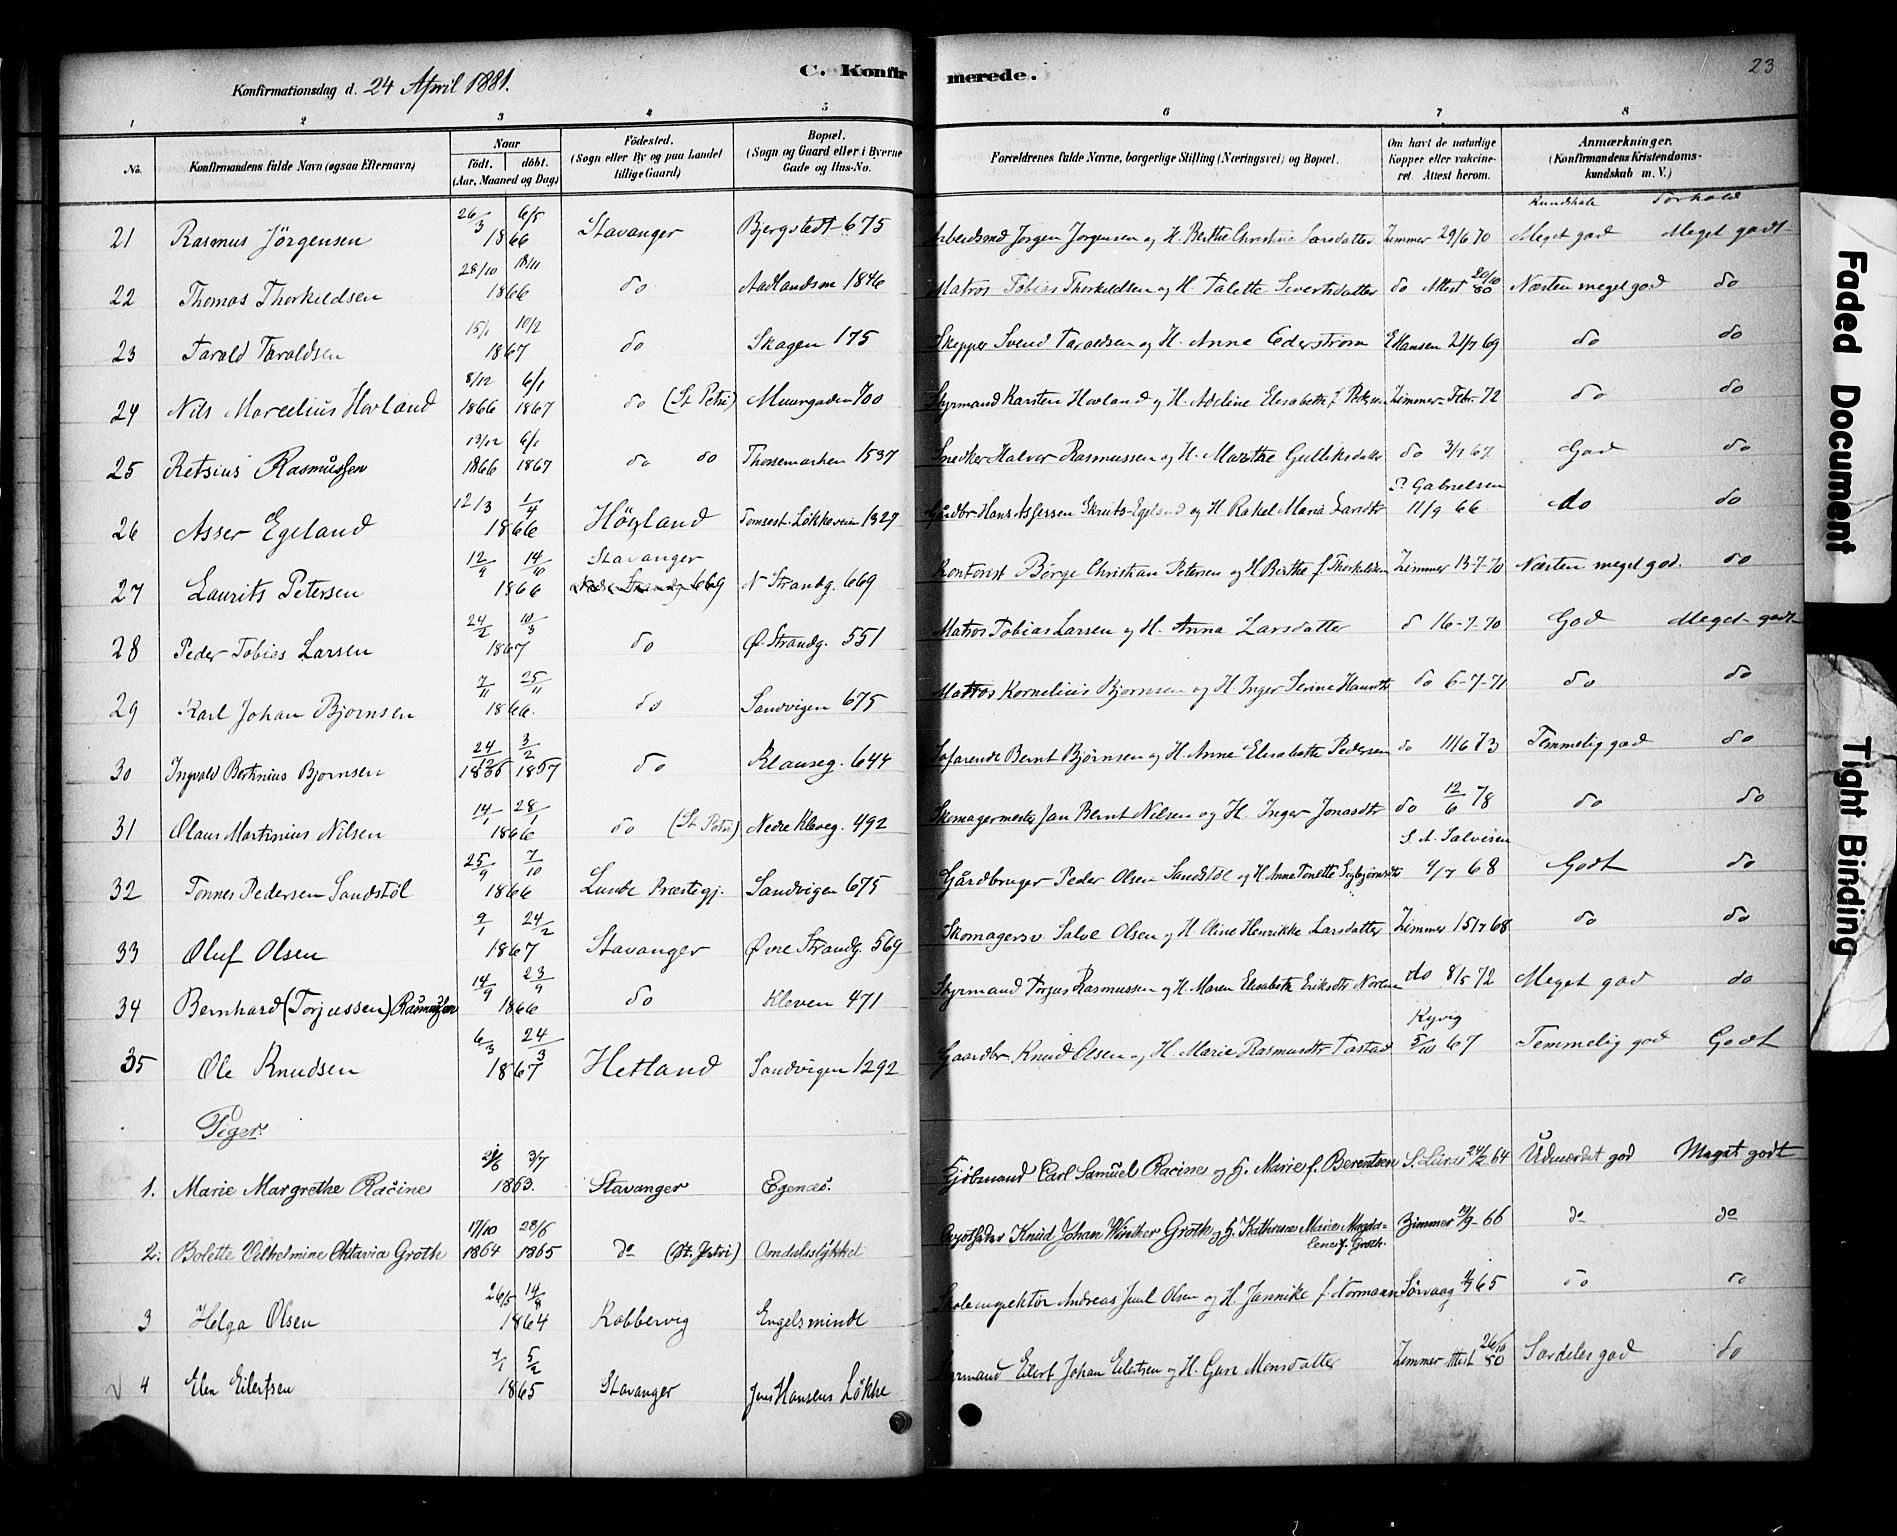 C. Konfirmerede.
23
Konfirmationsdag d. 24 April 1881.
1 2 3 4 5 6 7 8
No.
Konfirmandens fulde Navn (ogsaa Efternavn)
Naar
født. døbt.
(Aar, Maaned og Dag)
Fødested.
(Sogn eller By og paa Landet tillige Gaard)
Bopæl.
(Sogn og Gaard eller i Byerne Gade og Hus-No.
Forældrenes fulde Navne, borgerlige Stilling (Næringsvei) og Bopæl.
Om havt de naturlige Kopper eller vakcineret. Attest herom.
Anmærkninger.
(Konfirmandens Kristendomskundskab m. V.)
Kundskab Forhold
21 Rasmus Jörgensen 26/3 6/5 1866 Stavanger Bjergstedt 675 Arbeidsmd Jørgen Jørgensen og H. Berthe Christine Larsdatter Zimmer 29/6 70 Meget god Meget godt
22 Thomas Thorkildsen 28/10 18/11 1866 do Aadlandsm 1846 Matros Tobias Thorkildsen og H. Talette Sivertsdatter do Attest 20/10 80 Næsten meget god do
23 Tarald Taraldsen 15/1 10/2 1867 do Skagen 175 Skipper Svend Taraldsen og H. Anna Cederstrøm E Hansen 21/7 69 do do
24 Nils Marcelius Hovland 8/12 1866 6/1 1867 do (St Petri) Muurgaden 700 Styrmand Karsten Hovland og H. Adeline Elisabeth f. Pedersen Zimmer Febr. 72 do do
25 Retsius Rasmussen 13/12 1866 6/1 1867 do do 1537 Snedker Halvor Rasmussen og H. Marthe Gulliksdatter do 3/7 67 God do
26 Asser Egeland 12/3 1/4 1866 Högland Tomsest. Løkkeveien 1327 Gårdbr Hans Assersen Skruts-Egeland og H. Rakel Maria P. Gabrielsen 11/9 66 do do
27 Laurits Petersen 12/9 14/10 1866 Stavanger Nedre Strandg 669 N Strandg. 669 Kontorist Børge Christian Petersen og H Berthe f. Thorkildsen Zimmer 13-7-70 Næsten meget god. do
28 Peder Tobias Larsen 24/2 10/3 1867 do Ø. Strandg. 551 Matros Tobias Larsen og H. Anna Larsdatter d 16-7-70 God Meget godt
29 Karl Johan Bjørnsen 7/11 25/11 1866. do Sandvigen 675 Matros Kornelius Bjørnsen og H Inger Serine do 6-7-71 do do
30 Ingvald Bertinius Bjørnsen 24/12 3/2 1857 do Klauseg. 644 Søfarende Bernt Bjørnsen og H. Anne Elisabeth Pedersen do 11/6 73 Temmelig god do
31 Olaus Martinius Nilsen 14/1 28/1 1866 do (St Petri) Nedre Kleveg. 492 Skomagermester Jan Bernt Nilsen og H. Inger Jonasdtr do 12/6 78 do do
32 Tønnes Pedersen Sandstøl 25/9 7/10 1866 Lunde Præstegj. Sandvigen 675 Gårdbruger Peder Olsen Sandstøl og H. Anne Tonette S. A. Salvesen 4/7 68 Godt do
33 Oluf Olsen 9/1 24/2 1867 Stavanger Øvre Strandg. 569 Skomagersv. Salve Olsen og H. Oline Henrikke Larsdatter Zimmer 15/7 68 do do
34 Bernhard (Torjussen) Rasmussen 14/9 23/9 1866 do Kleven 471 Styrmand Torjus Rasmussen og H. Maren Elisabeth Eriksdtr do 8/5 72 Meget god do
35 Ole Knudsen 6/3 24/3 1867 Hetland Sandvigen 1292 Gaardbr. Knud Olsen og H. Marie Rasmusdtr Tastad Kyvig 5/10 67 Temmelig god Godt
Piger.
1. Marie Margrethe Racine 3/7 1863. Stavanger Egenæs. Kjøbmand Carl Samuel Racine og H. Marie f. Berentsen 24/2 64 Udmærket god Meget godt
2. Bolette Vilhelmine Oktavia Groth 17/10 1864 28/5 1865 do (St. Petri) Knud Johan Winther Groth og H. Kathrine Marie Magdalene f. Groth. Zimmer 66 do do
3 Helga Olsen 26/5 14/8 1864 Kobbervig Engelsminde Skoleinspektør Andreas Juul Olsen og H. Jannike f. Normann Sørvaag 65 do do
4 Elen Eilertsen 7/1 5/2 1865 Stavanger Jens Hansens Løkke Styrmand Eilert Johan Eilertsen og H. Guri Monsdatter Zimmer Attest 26/10 80 Særdeles god do
Faded Document
Tight Binding